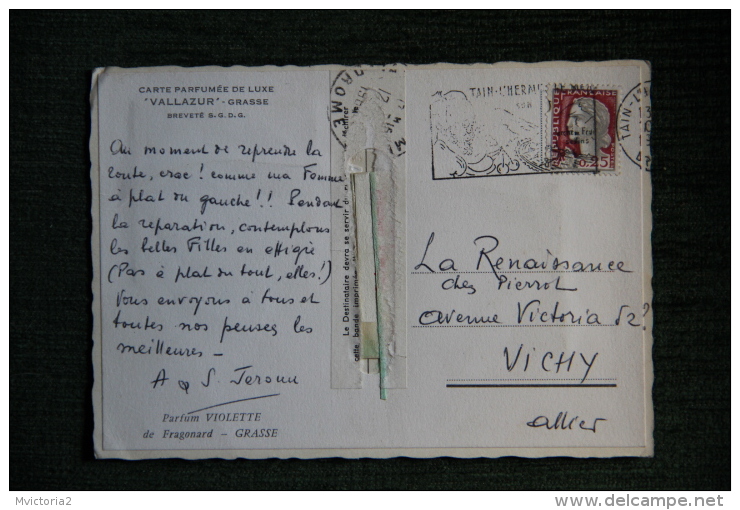 CARTE PARFUMÉE DE LUXE
"VALLAZUR" - GRASSE
BREVETÉ S.G.D.G.
Au moment de reprendre la
route, crac! comme ma Femme
à plat du gauche!! Pendant
la reparation, contemplons
les belles Filles en effigie
(Pas à plat du tout, elles!)
Vous envoyons à tous et
toutes nos pensées les
meilleures -
A & S.
Parfum VIOLETTE
de Fragonard - GRASSE
Le Destinataire devra se servir
cette bande imprimée
DROME
TAIN-L'HERMITAGE
REPUBLIQUE FRANÇAISE
0,25
TAIN-L'H
La Renaissance
chez Pierrot
avenue Victoria
VICHY
Allier
Mvictoria2
http://www.delcampe.net